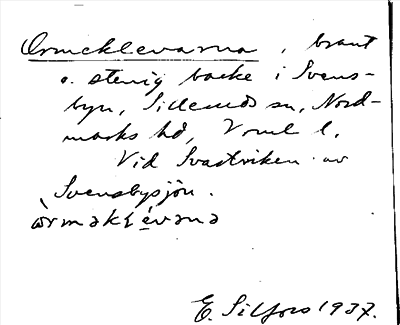 Ormeklevarna, brant
o. stenig backe i Svens-
byn, Sillerud sn, Nord-
marks hd, Vrml l.
Vid Svartviken av
Svensbysjön.
E. Silfors 1937.